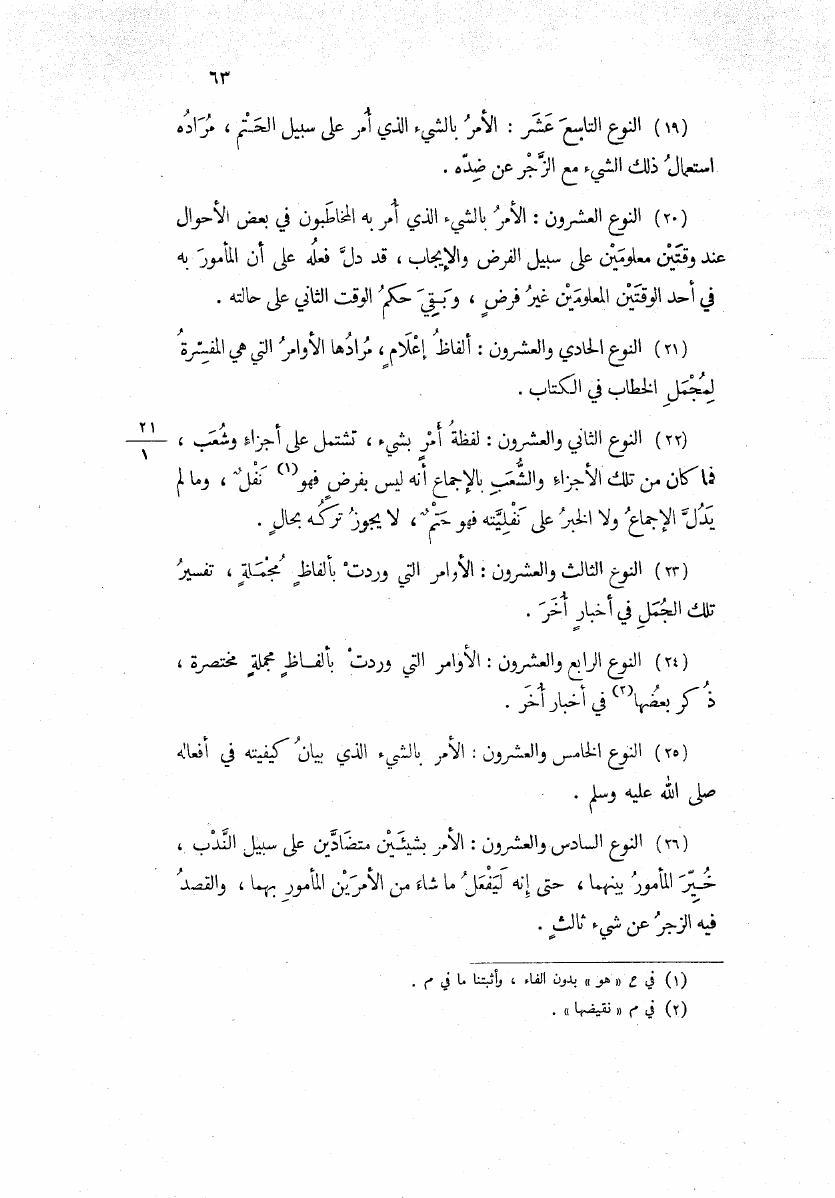 ٦٣
(١٩) النوع التاسِعَ عَشَر : الأمرُ بالشيء الذي أُمر على سبيل الحَتْم ، مُرَادُه
استعمالُ ذلك الشيء مع الزَّجْر عن ضِدّه .
(٢٠) النوع العشرون : الأمرُ بالشيء الذي أُمر به المخاطَبون في بعض الأحوال
عند وقتَيْن معلومَيْن على سبيل الفرض والإيجاب ، قد دلَّ فعلُه على أن المأمورَ به
في أحد الوقتَيْن المعلومَيْن غيرُ فرضٍ ، وبَقِيَ حكمُ الوقت الثاني على حالته .
(٢١) النوع الحادي والعشرون : ألفاظُ إعْلَامٍ ، مُرَادُها الأوامرُ التي هي المفسِّرةُ
لِمُجْمَلِ الخطاب في الكتاب .
(٢٢) النوع الثاني والعشرون : لفظةُ أَمْرٍ بشيء ، تشتمل على أجزاءٍ وشُعَب ،
٢١
١
فما كان من تلك الأجزاء والشُّعَبِ بالإجماع أنه ليس بفرضٍ فهو(١) نَفْلٌ ، وما لم
يَدُلَّ الإجماعُ ولا الخبرُ على نَفْلِيَّته فهو حَتْمٌ ، لا يجوزُ تركُه بحالٍ .
(٢٣) النوع الثالث والعشرون : الأوامر التي وردتْ بألفاظٍ مُجْمَلةٍ ، تفسيرُ
تلك الجُمَلِ في أخبارٍ أُخَرَ .
(٢٤) النوع الرابع والعشرون : الأوامر التي وردتْ بألفاظٍ مجملةٍ مختصرة ،
ذُكر بعضُها(٢) في أخبار أُخَر .
(٢٥) النوع الخامس والعشرون : الأمر بالشيء الذي بيانُ كيفيته في أفعاله
صلى الله عليه وسلم .
(٢٦) النوع السادس والعشرون : الأمر بشيئَيْن متضَادَّين على سبيل النَّدْب ،
خُيِّرَ المأمورُ بينهما ، حتى إنه لَيَفْعَلُ ما شاء من الأمرَيْن المأمورِ بهما ، والقصدُ
فيه الزجرُ عن شيء ثالثٍ .
(١) في ع « هو » بدون الفاء ، وأثبتنا ما في م .
(٢) في م « نقيضها » .